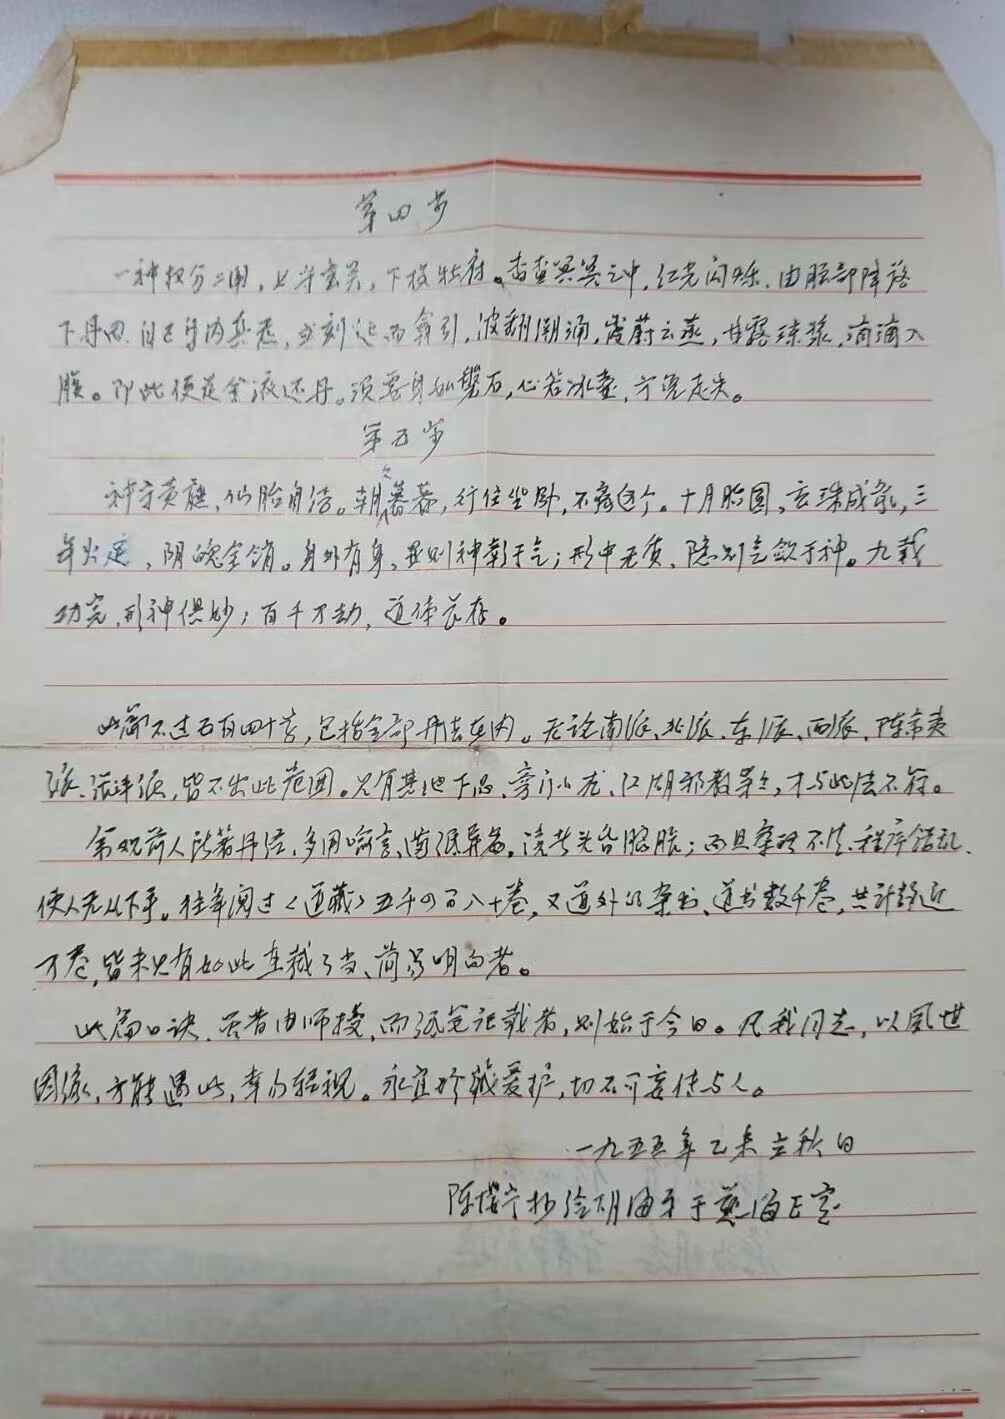 第四步
一神权分二用，上守玄关，下投牝府。杳杳冥冥之中，红光闪烁，由脑部降落
下丹田，自己身内真炁，立刻迎而翕引，波翻潮涌，霞蔚云蒸，甘露琼浆，滴滴入
腹。即此便是金液还丹。须要身如磐石，心若冰壶，方免走失。
第五步
神守黄庭，仙胎自结。朝夕暮，行住坐卧，不离这个。十月胎圆，玄珠成象，三
年火足，阴魄全销。身外有身，显则神彰于气；形中无质，隐则气敛于神。九载
功完，形神俱妙；百千万劫，道体长存。
此篇不过五百四十字，包括全部丹法在内。无论南派、北派、东派、西派、陈希夷
派、张三丰派，皆不出此范围。只有其他下品、旁门小术、江湖邪教等等，才与此法不符。
余观前人所著丹经，多用喻言、隐语异名，读者头昏脑胀；而且条理不清、程序错乱、
使人无从下手。往年阅过《道藏》五千四百八十卷，又道外的杂书、道书数千卷，共计将近
万卷，皆未见有如此直截了当、简易明白者。
此篇口诀，在昔由师授，而纸笔记载者，则始于今日。凡我同志，以夙世
因缘，方能遇此，幸勿轻视。永宜珍藏爱护，切不可妄传与人。
一九五五年乙未立秋日
陈撄宁抄给胡海牙于慈海医室